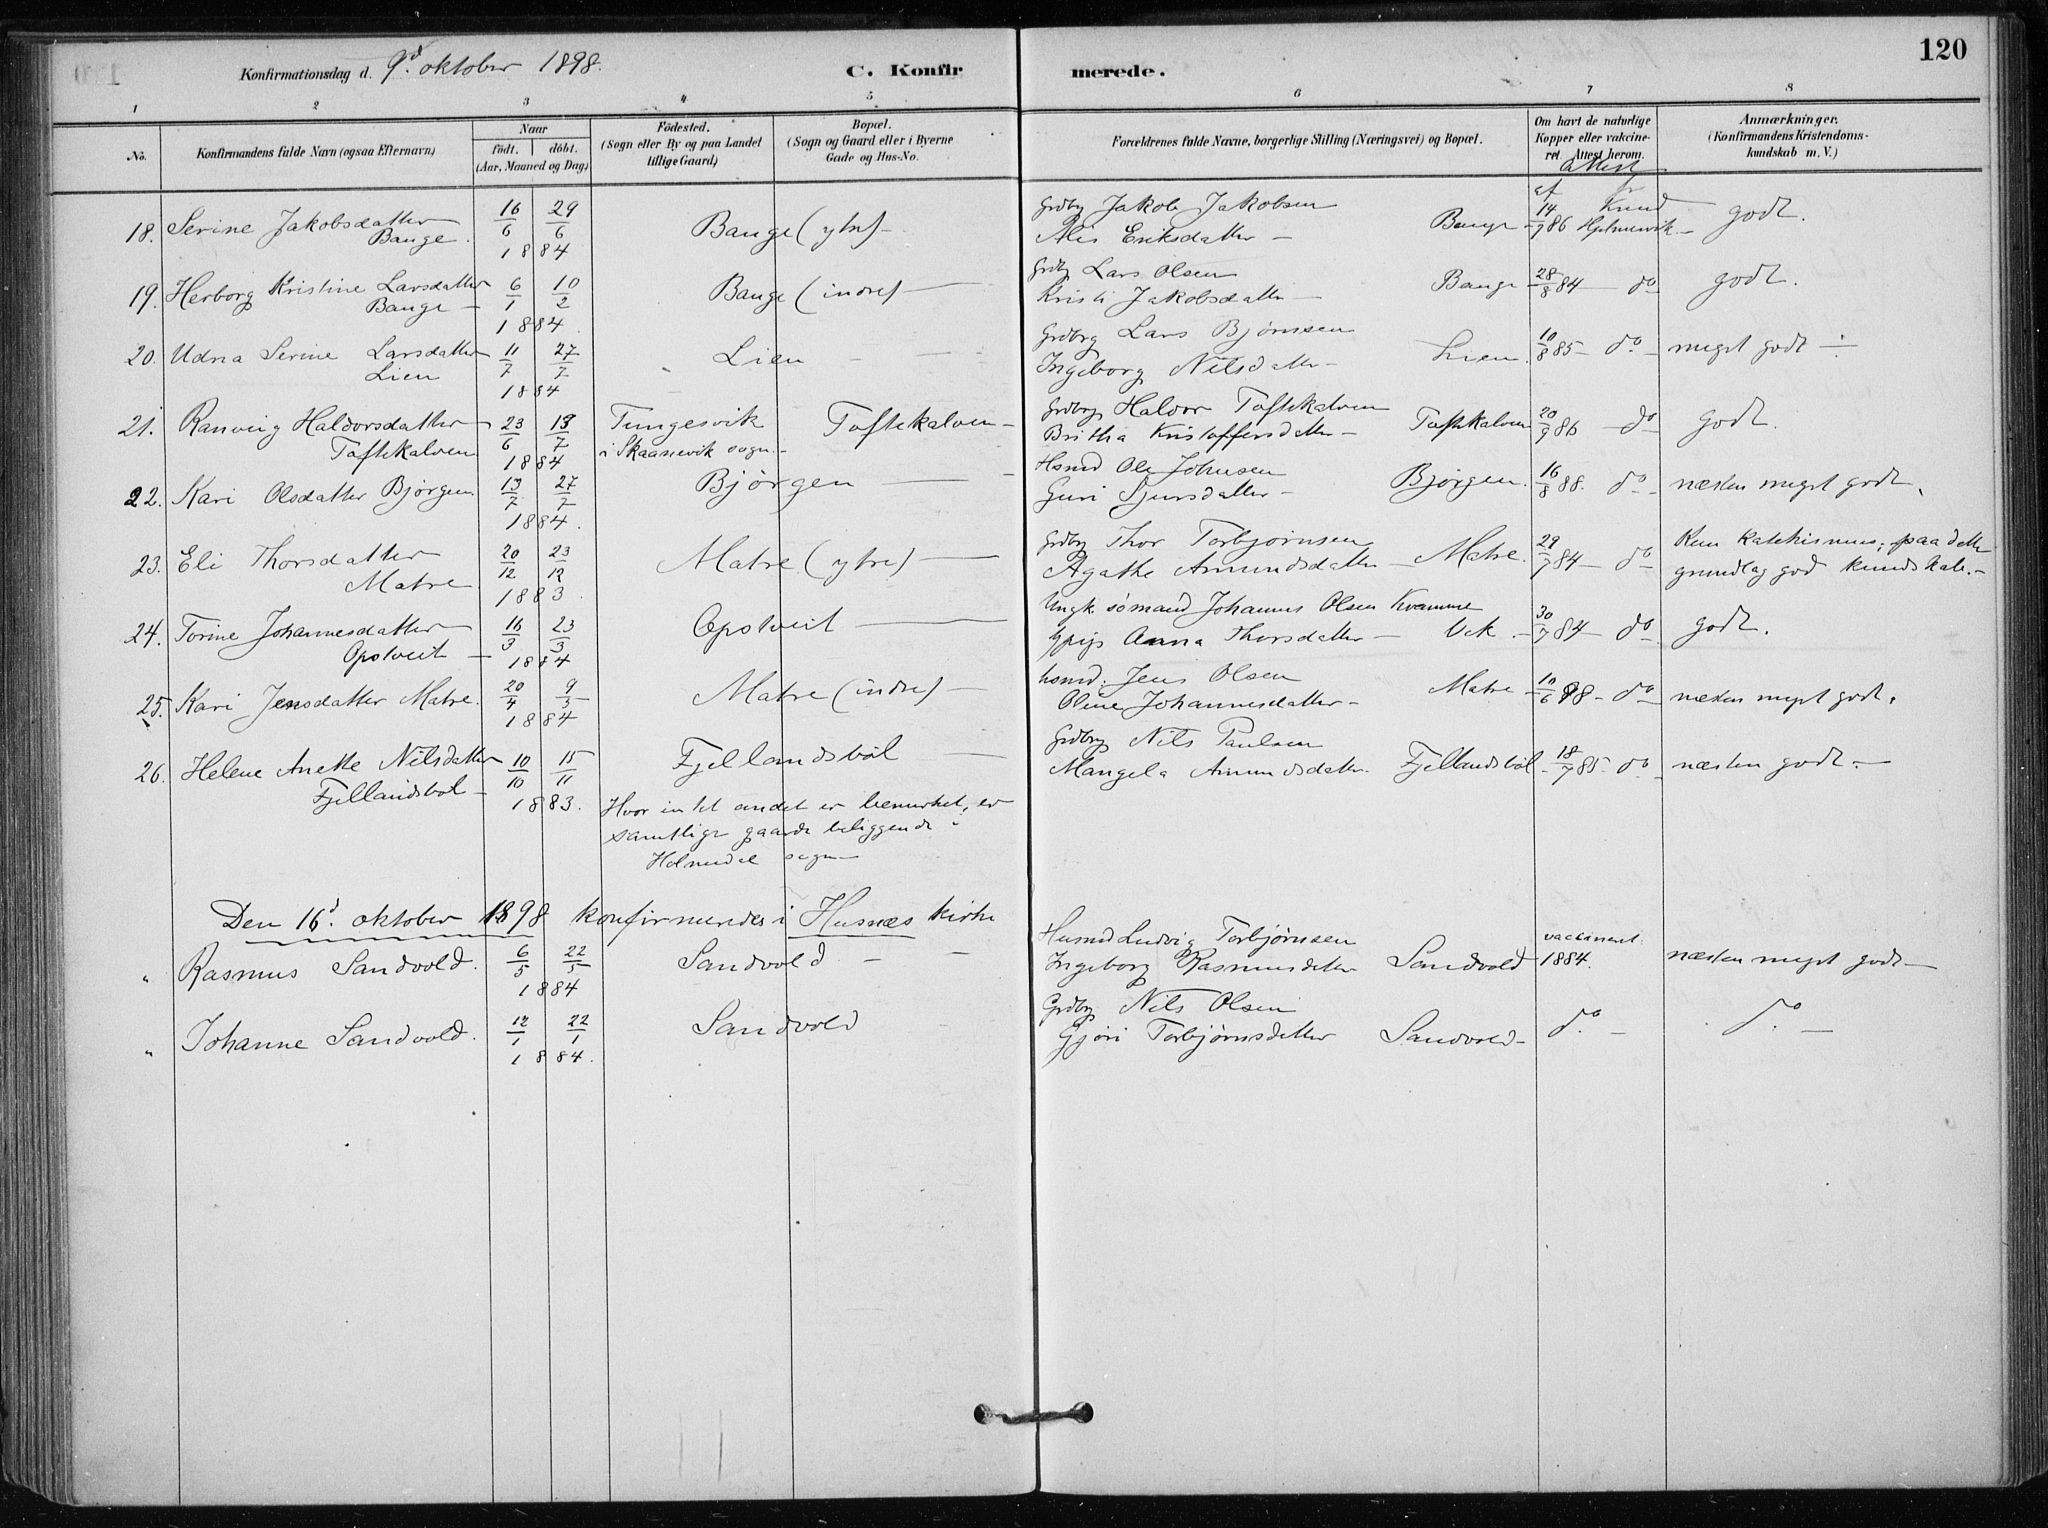 120
Konfirmationsdag d. 9d oktober 1898. C. Konfirmerede.
1 2 3 4 5 6 7 8
No. Konfirmandens fulde Navn (ogsaa Efternavn) Naar født. døbt. (Aar, Maaned og Dag) Fødested. (Sogn eller By og paa Landet tillige Gaard) Bopæl. (Sogn og Gaard eller i Byerne Gade og Hus-No. Forældrenes fulde Navne, borgerlige Stilling (Næringsvei) og Bopæl. Om havt de naturlige Kopper eller vakcineret. Attest herom. Anmærkninger. (Konfirmandens Kristendomskundskab m. V.)
Attest
af fr
18. Serine Jakobsdatter 16/6 29/6 Bauge (ytre) - Grdbr Jakob Jakobsen Bauge - 14/9 86 Knud godt.
Bauge. 1884 Alis Eriksdatter - Hjelmevik -
19. Herborg Kristine Larsdatter 6/1 10/2 Bauge (indre) - Grdbr Lars Olsen Bauge - 28/8 84 - do - godt.
Bauge - 1884. Kristi Jakobsdatter -
20. Udna Serine Larsdatter 11/7 27/7 Lien - - Grdbrg Lars Bjørnsen Lien. 10/8 85 - do - meget godt -
Lien 1884 Ingeborg Nilsdatter -
21. Ranveig Haldorsdatter 23/6 13/7 Tungesvik Toftekalven - Grdbrg Haldor Toftekalven Toftekalven 20/9 86 - do - godt.
Toftekalven 1884 i Skaanevik sogn. - Britha Kristoffersdatter -
22. Kari Olsdatter Bjørgen. 13/7 27/7 Bjørgen - Hsmd Ole Johnsen Bjørgen. 16/8 88. do - næsten meget godt.
1884. Guri Sjursdatter -
23. Eli Thorsdatter 20/12 23/12 Matre (ytre) - Grdbr Thor Torbjørnsen Matre. 29/9 84 - do - Kun katekismus; paa dette
Matre 1883 Agathe Amundsdatter - grundlag god kundskab. -
24. Torine Johannesdatter 16/3 23/3 Opstveit - Ungk. sømand Johannes Olsen Kvamme 30/7 84 - do - godt.
Opstveit - 1884 Gpig Anna Thorsdatter - Vik -
25. Kari Jensdatter Matre. 20/4 9/3 Matre (indre) - husmd. Jens Olsen Matre - 10/6 98 - do - næsten meget godt.
1884 Oline Johannesdatter -
26. Helene Anette Nilsdatter 10/10 15/11 Fjellandsbøl - Grdbrg Nils Paulsen Fjellandsbøl - 18/9 85 - do - næsten godt. -
Fjellandsbøl - 1883. Mangela Amundsdatter.
Hvor intet andet er bemerket, er
samtlige gaarde beliggende i
Holmedal sogn -
Den 16d. oktober 1898 konfirmeredes i Husnæs kirke
" Rasmus Sandvold. 6/5 22/5 Sandvold - - Husmd Ludvig Torbjørnsen Sandvold vaccineret næsten meget godt -
1884 Ingeborg Rasmusdatter 1884.
" Johanne Sandvold. 12/1 22/1 Sandvold - Grdbrg Nils Olsen do - do -
1884. Gjøri Torbjørnsdatter Sandvold -